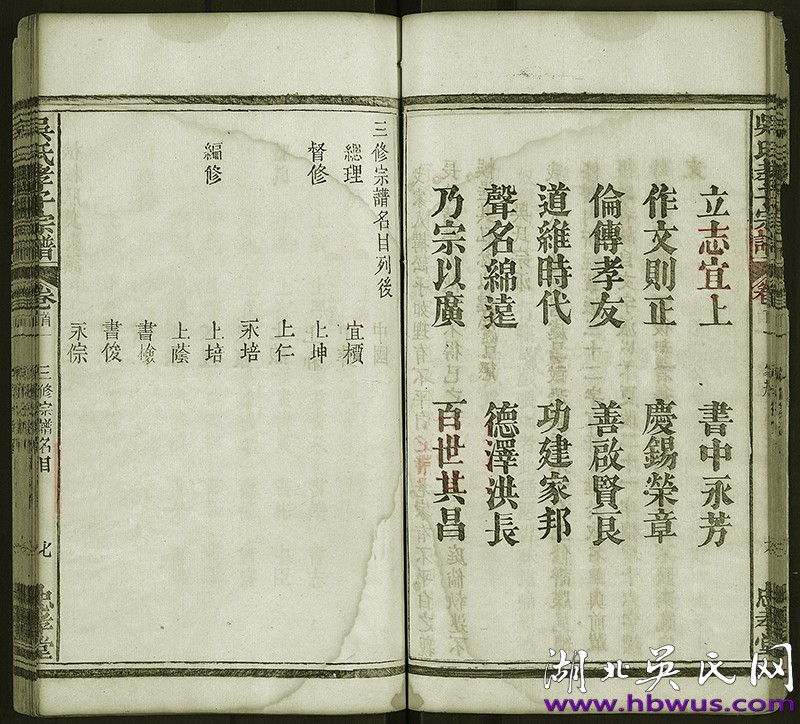 立志宜上 書中永芳
作文則正 慶錫榮章
倫傳孝友 善啟賢良
道維時代 功建家邦
聲名綿遠 德澤洪長
乃宗以廣 百世其昌
三修宗譜名目列後
總理 宜櫝
督修 上坤
上仁
永培
編修 上培
上蔭
書檢
書俊
永倧
吳氏孝子宗譜 卷首 三修宗譜名目 七 忠孝堂
湖北吴氏网
www.hbwus.com